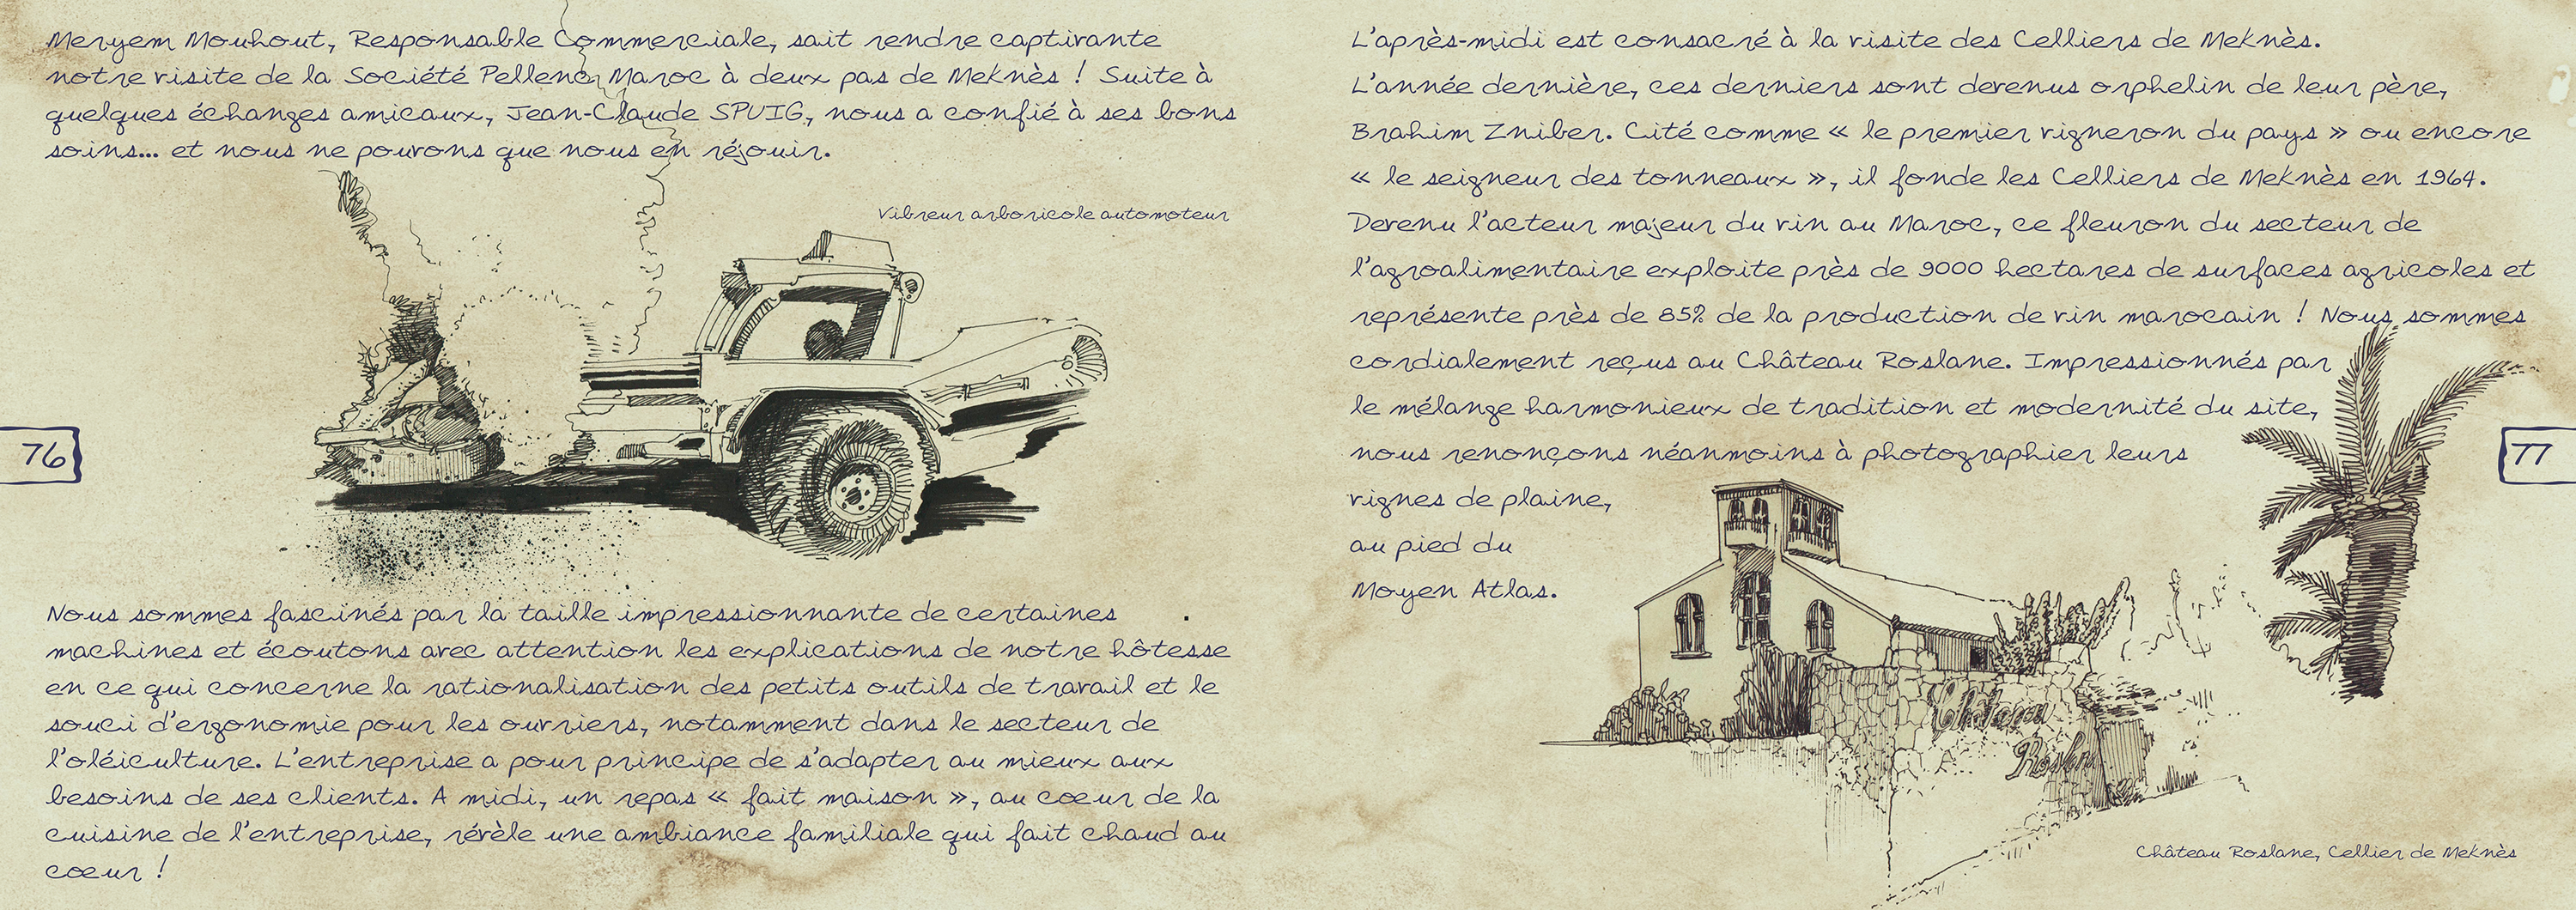 Meryem Mouhout, Responsable Commerciale, sait rendre captivante
notre visite de la Société Pellenc Maroc à deux pas de Meknès ! Suite à
quelques échanges amicaux, Jean-Claude SPUIG, nous a confié à ses bons
soins... et nous ne pouvons que nous en réjouir.
Vibreur arboricole automoteur
76
Nous sommes fascinés par la taille impressionnante de certaines
machines et écoutons avec attention les explications de notre hôtesse
en ce qui concerne la rationalisation des petits outils de travail et le
souci d'ergonomie pour les ouvriers, notamment dans le secteur de
l'oléiculture. L'entreprise a pour principe de s'adapter au mieux aux
besoins de ses clients. A midi, un repas « fait maison », au coeur de la
cuisine de l'entreprise, révèle une ambiance familiale qui fait chaud au
coeur !
L'après-midi est consacré à la visite des Celliers de Meknès.
L'année dernière, ces derniers sont devenus orphelin de leur père,
Brahim Zniber. Cité comme « le premier vigneron du pays » ou encore
« le seigneur des tonneaux », il fonde les Celliers de Meknès en 1964.
Devenu l'acteur majeur du vin au Maroc, ce fleuron du secteur de
l'agroalimentaire exploite près de 9000 hectares de surfaces agricoles et
représente près de 85% de la production de vin marocain ! Nous sommes
cordialement reçus au Château Roslane. Impressionnés par
le mélange harmonieux de tradition et modernité du site,
nous renonçons néanmoins à photographier leurs
vignes de plaine,
au pied du
Moyen Atlas.
77
Château
Roslan
Château Roslane, Cellier de Meknès